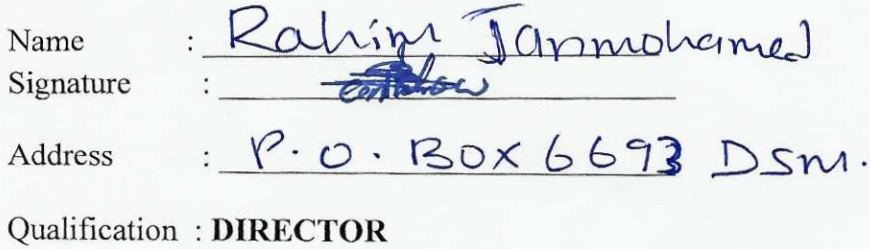 Name : Rahim Janmohamed
Signature :
Address : P.O. BOX 6693 Dsm.
Qualification : DIRECTOR